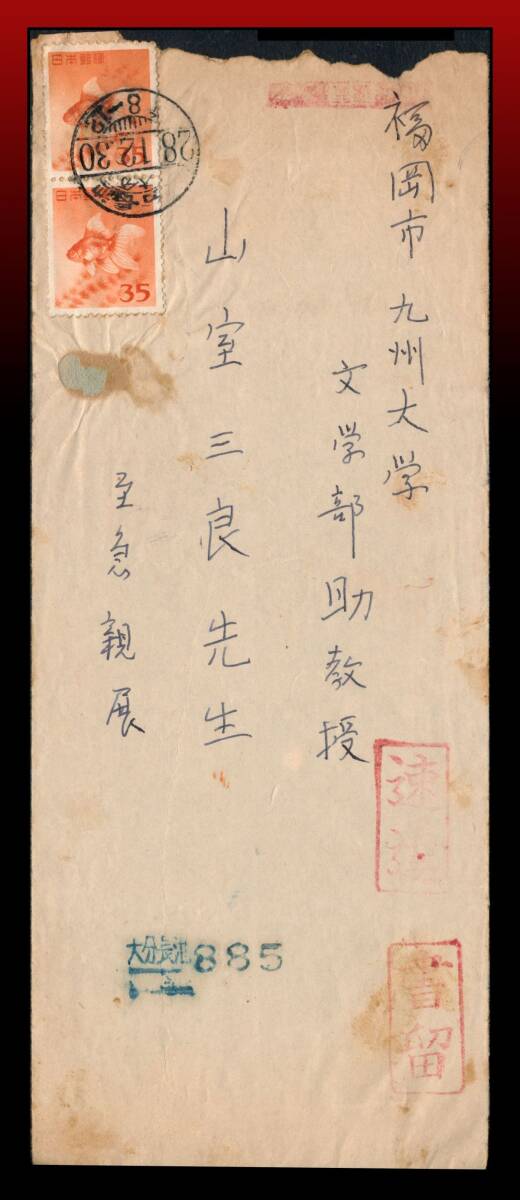 福岡市九州大学
文学部助教授
山室三良先生
至急親展
日本郵便
28.12.30
35
速達
書留
大分長池
885